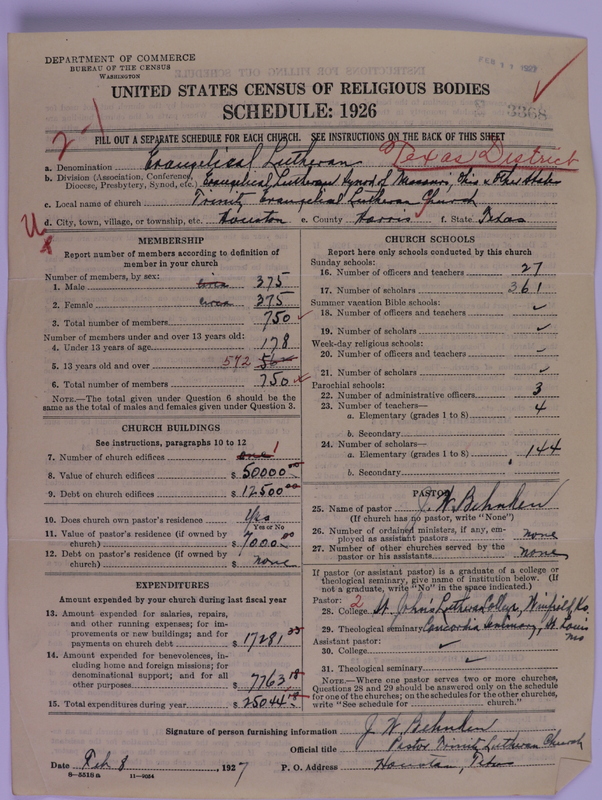 DEPARTMENT OF COMMERCE
BUREAU OF THE CENSUS
WASHINGTON
UNITED STATES CENSUS OF RELIGIOUS BODIES
SCHEDULE: 1926
3368
2-1
FILL OUT A SEPARATE SCHEDULE FOR EACH CHURCH. SEE INSTRUCTIONS ON THE BACK OF THIS SHEET
a. Denomination Evangelical Lutheran Texas District
b. Division (Association, Conference, Diocese, Presbytery, Synod, etc.) Evangelical Lutheran Synod of Missouri, Ohio & Other States
c. Local name of church Trinity Evangelical Lutheran Church
d. City, town, village, or township, etc. Houston e. County Harris f. State Texas
MEMBERSHIP
Report number of members according to definition of
member in your church
Number of members, by sex:
1. Male circa 375
2. Female circa 375
3. Total number of members 750
Number of members under and over 13 years old:
4. Under 13 years of age 178
5. 13 years old and over 572
6. Total number of members 750
NOTE.—The total given under Question 6 should be the
same as the total of males and females given under Question 3.
CHURCH BUILDINGS
See instructions, paragraphs 10 to 12
7. Number of church edifices one 1
8. Value of church edifices $ 50000.00
9. Debt on church edifices $ 12500.00
10. Does church own pastor's residence Yes
Yes or No
11. Value of pastor's residence (if owned by
church) $ 7000.00
12. Debt on pastor's residence (if owned by
church) $ none
EXPENDITURES
Amount expended by your church during last fiscal year
13. Amount expended for salaries, repairs,
and other running expenses; for im-
provements or new buildings; and for
payments on church debt $ 17281.
14. Amount expended for benevolences, in-
cluding home and foreign missions; for
denominational support; and for all
other purposes $ 7763.18
15. Total expenditures during year $ 25044.18
CHURCH SCHOOLS
Report here only schools conducted by this church
Sunday schools:
16. Number of officers and teachers 27
17. Number of scholars 361
Summer vacation Bible schools:
18. Number of officers and teachers
19. Number of scholars
Week-day religious schools:
20. Number of officers and teachers
21. Number of scholars
Parochial schools:
22. Number of administrative officers 3
23. Number of teachers— 4
a. Elementary (grades 1 to 8)
b. Secondary
24. Number of scholars—
a. Elementary (grades 1 to 8) 144
b. Secondary
PASTOR
25. Name of pastor J. W. Behnken
(If church has no pastor, write "None")
26. Number of ordained ministers, if any, em-
ployed as assistant pastors none
27. Number of other churches served by the
pastor or his assistants none
If pastor (or assistant pastor) is a graduate of a college or
theological seminary, give name of institution below. (If
not a graduate, write "No" in the space indicated.)
Pastor: 2
28. College St. Johns Lutheran College, Winfield, Ks.
29. Theological seminary Concordia Seminary, St. Louis
Mo
Assistant pastor:
30. College
31. Theological seminary
NOTE.—Where one pastor serves two or more churches,
Questions 28 and 29 should be answered only on the schedule
for one of the churches; on the schedules for the other churches,
write "See schedule for ________ church."
Signature of person furnishing information J. W. Behnken
Official title Pastor Trinity Lutheran Church
Date Feb 8, 1927 P. O. Address Houston, Texas
8—5518a 11—9034